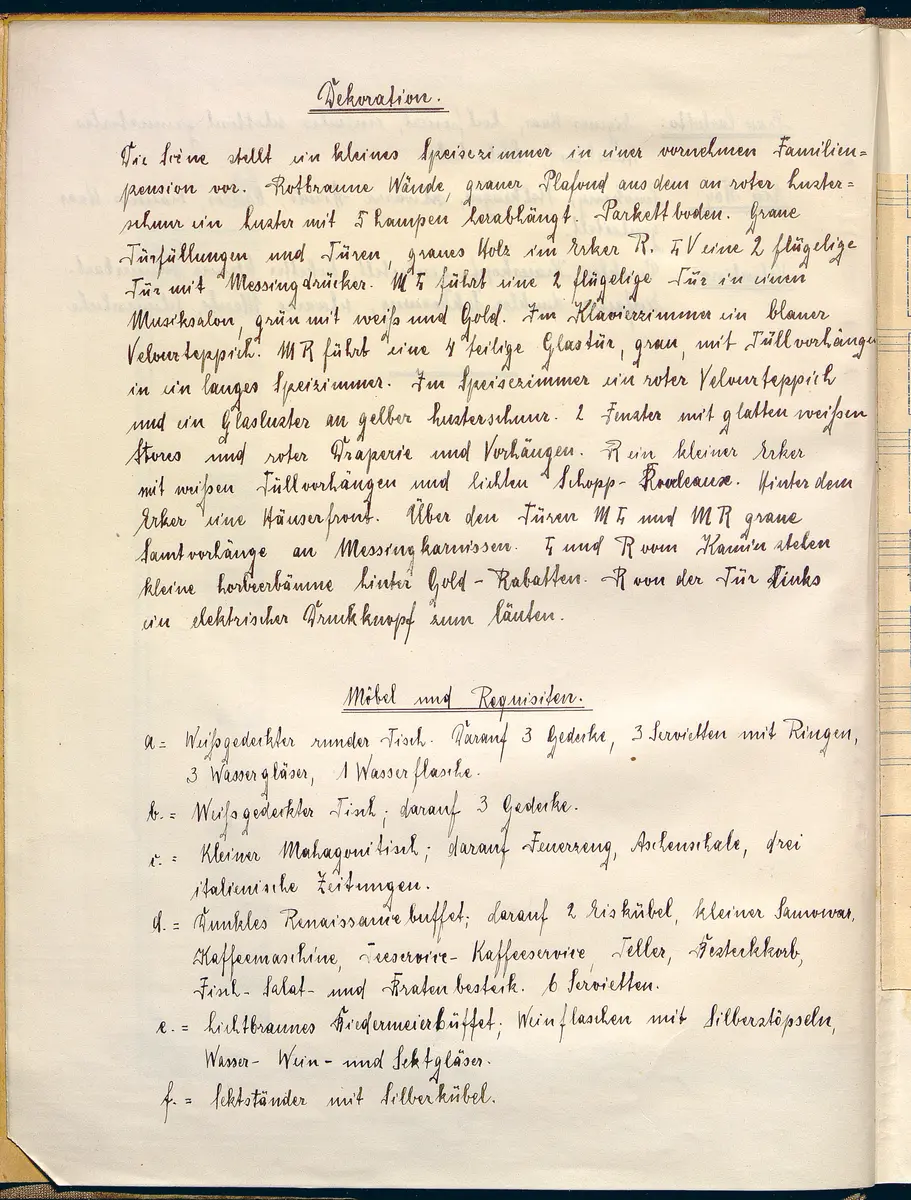 Dekoration.
Die Scène stellt ein kleines Speisezimmer in einer vornehmen Familien=
pension vor. Rotbraune Wände, grauer Plafond aus dem an roter Luster=
schnur ein Luster mit 5 Lampen herabhängt. Parkettboden. Graue
Türfüllungen und Türen, graues Holz im Erker R. L V eine 2 flügelige
Tür mit Messingdrücker. M L führt eine 2 flügelige Tür in einen
Musiksalon, grün mit weiß und Gold. Im Klavierzimmer ein blauer
Velourteppich. M R führt eine 4 teilige Glastür, grau, mit Tüllvorhängen
in ein langes Speizimmer. Im Speisezimmer ein roter Velourteppich
und ein Glasluster an gelber Lusterschnur. 2 Fenster mit glatten weissen
Stores und roter Draperie und Vorhängen. R ein kleiner Erker
mit weißen Tüllvorhängen und lichten Schopp-Rouleaux. Hinter dem
Erker eine Häuserfront. Über den Türen M L und M R graue
Samtvorhänge an Messingkarnissen. L und R vom Kamin stehen
kleine Lorbeerbäume hinter Gold-Rabatten. R von der Tür Links
ein elektrischer Druckknopf zum läuten.
Möbel und Requisiten.
a = Weißgedeckter runder Tisch. Darauf 3 Gedecke, 3 Servietten mit Ringen,
3 Wassergläser, 1 Wasserflasche.
b. = Weißgedeckter Tisch; darauf 3 Gedecke.
c. = Kleiner Mahagonitisch; darauf Feuerzeug, Aschenschale, drei
italienische Zeitungen.
d. = Dunkles Renaissancebuffet; darauf 2 Eiskübel, kleiner Samowar,
Kaffeemaschine, Teeservice- Kaffeeservice, Teller, Besteckkorb,
Fisch- Salat- und Bratenbesteck. 6 Servietten.
e. = Lichtbraunes Biedermeierbüffet; Weinflaschen mit Silberstöpseln,
Wasser- Wein- und Sektgläser.
f. = Sektständer mit Silberkübel.